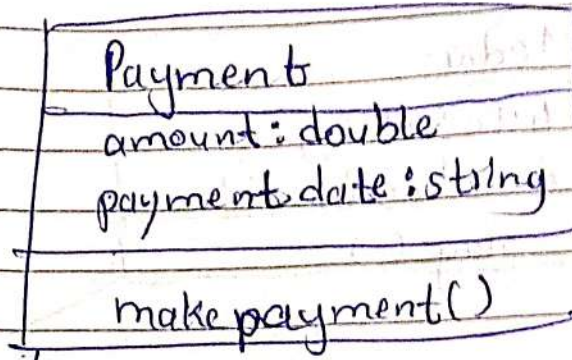 Payment
amount: double
payment.date: string
make payment()